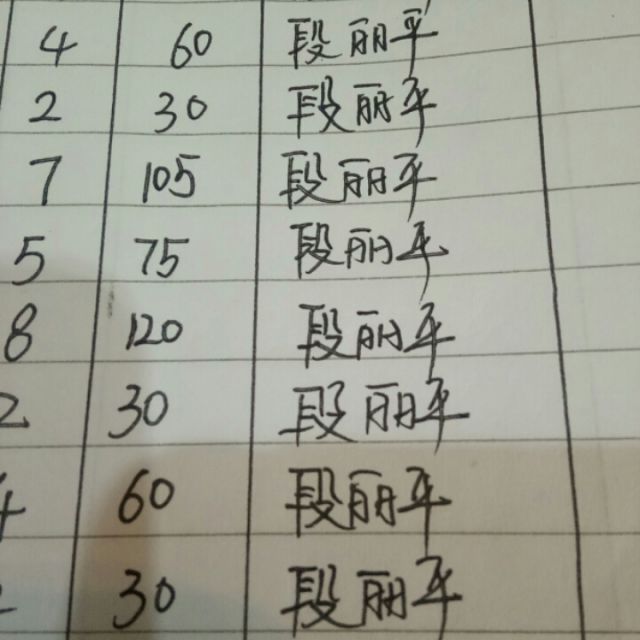 4 60 段丽平
2 30 段丽平
7 105 段丽平
5 75 段丽平
8 120 段丽平
2 30 段丽平
4 60 段丽平
30 段丽平